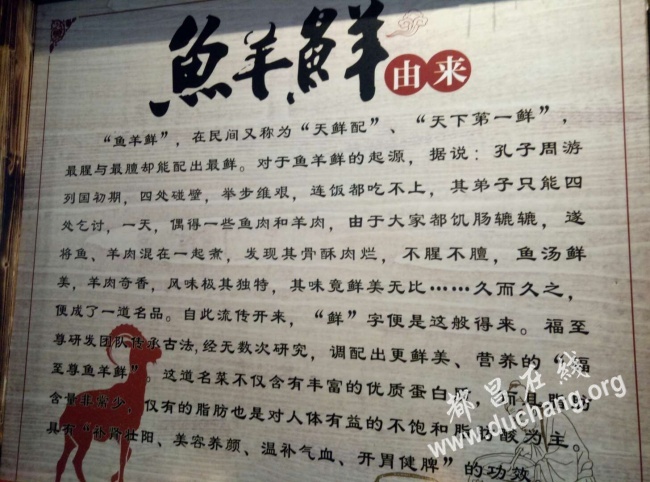 魚羊鮮
由来
“鱼羊鲜”，在民间又称为“天鲜配”、“天下第一鲜”，
最腥与最膻却能配出最鲜。对于鱼羊鲜的起源，据说：孔子周游
列国初期，四处碰壁，举步维艰，连饭都吃不上，其弟子只能四
处乞讨，一天，偶得一些鱼肉和羊肉，由于大家都饥肠辘辘，遂
将鱼、羊肉混在一起煮，发现其骨酥肉烂，不腥不膻，鱼汤鲜
美，羊肉奇香，风味极其独特，其味竟鲜美无比……久而久之，
便成了一道名品。自此流传开来，“鲜”字便是这般得来。福至
尊研发团队传承古法,经无数次研究，调配出更鲜美、营养的“福
至尊鱼羊鲜”。这道名菜不仅含有丰富的优质蛋白质，而且脂肪
含量非常少，仅有的脂肪也是对人体有益的不饱和脂肪酸为主，
具有“补肾壮阳、美容养颜、温补气血、开胃健脾”的功效
都昌在线
www.duchang.org